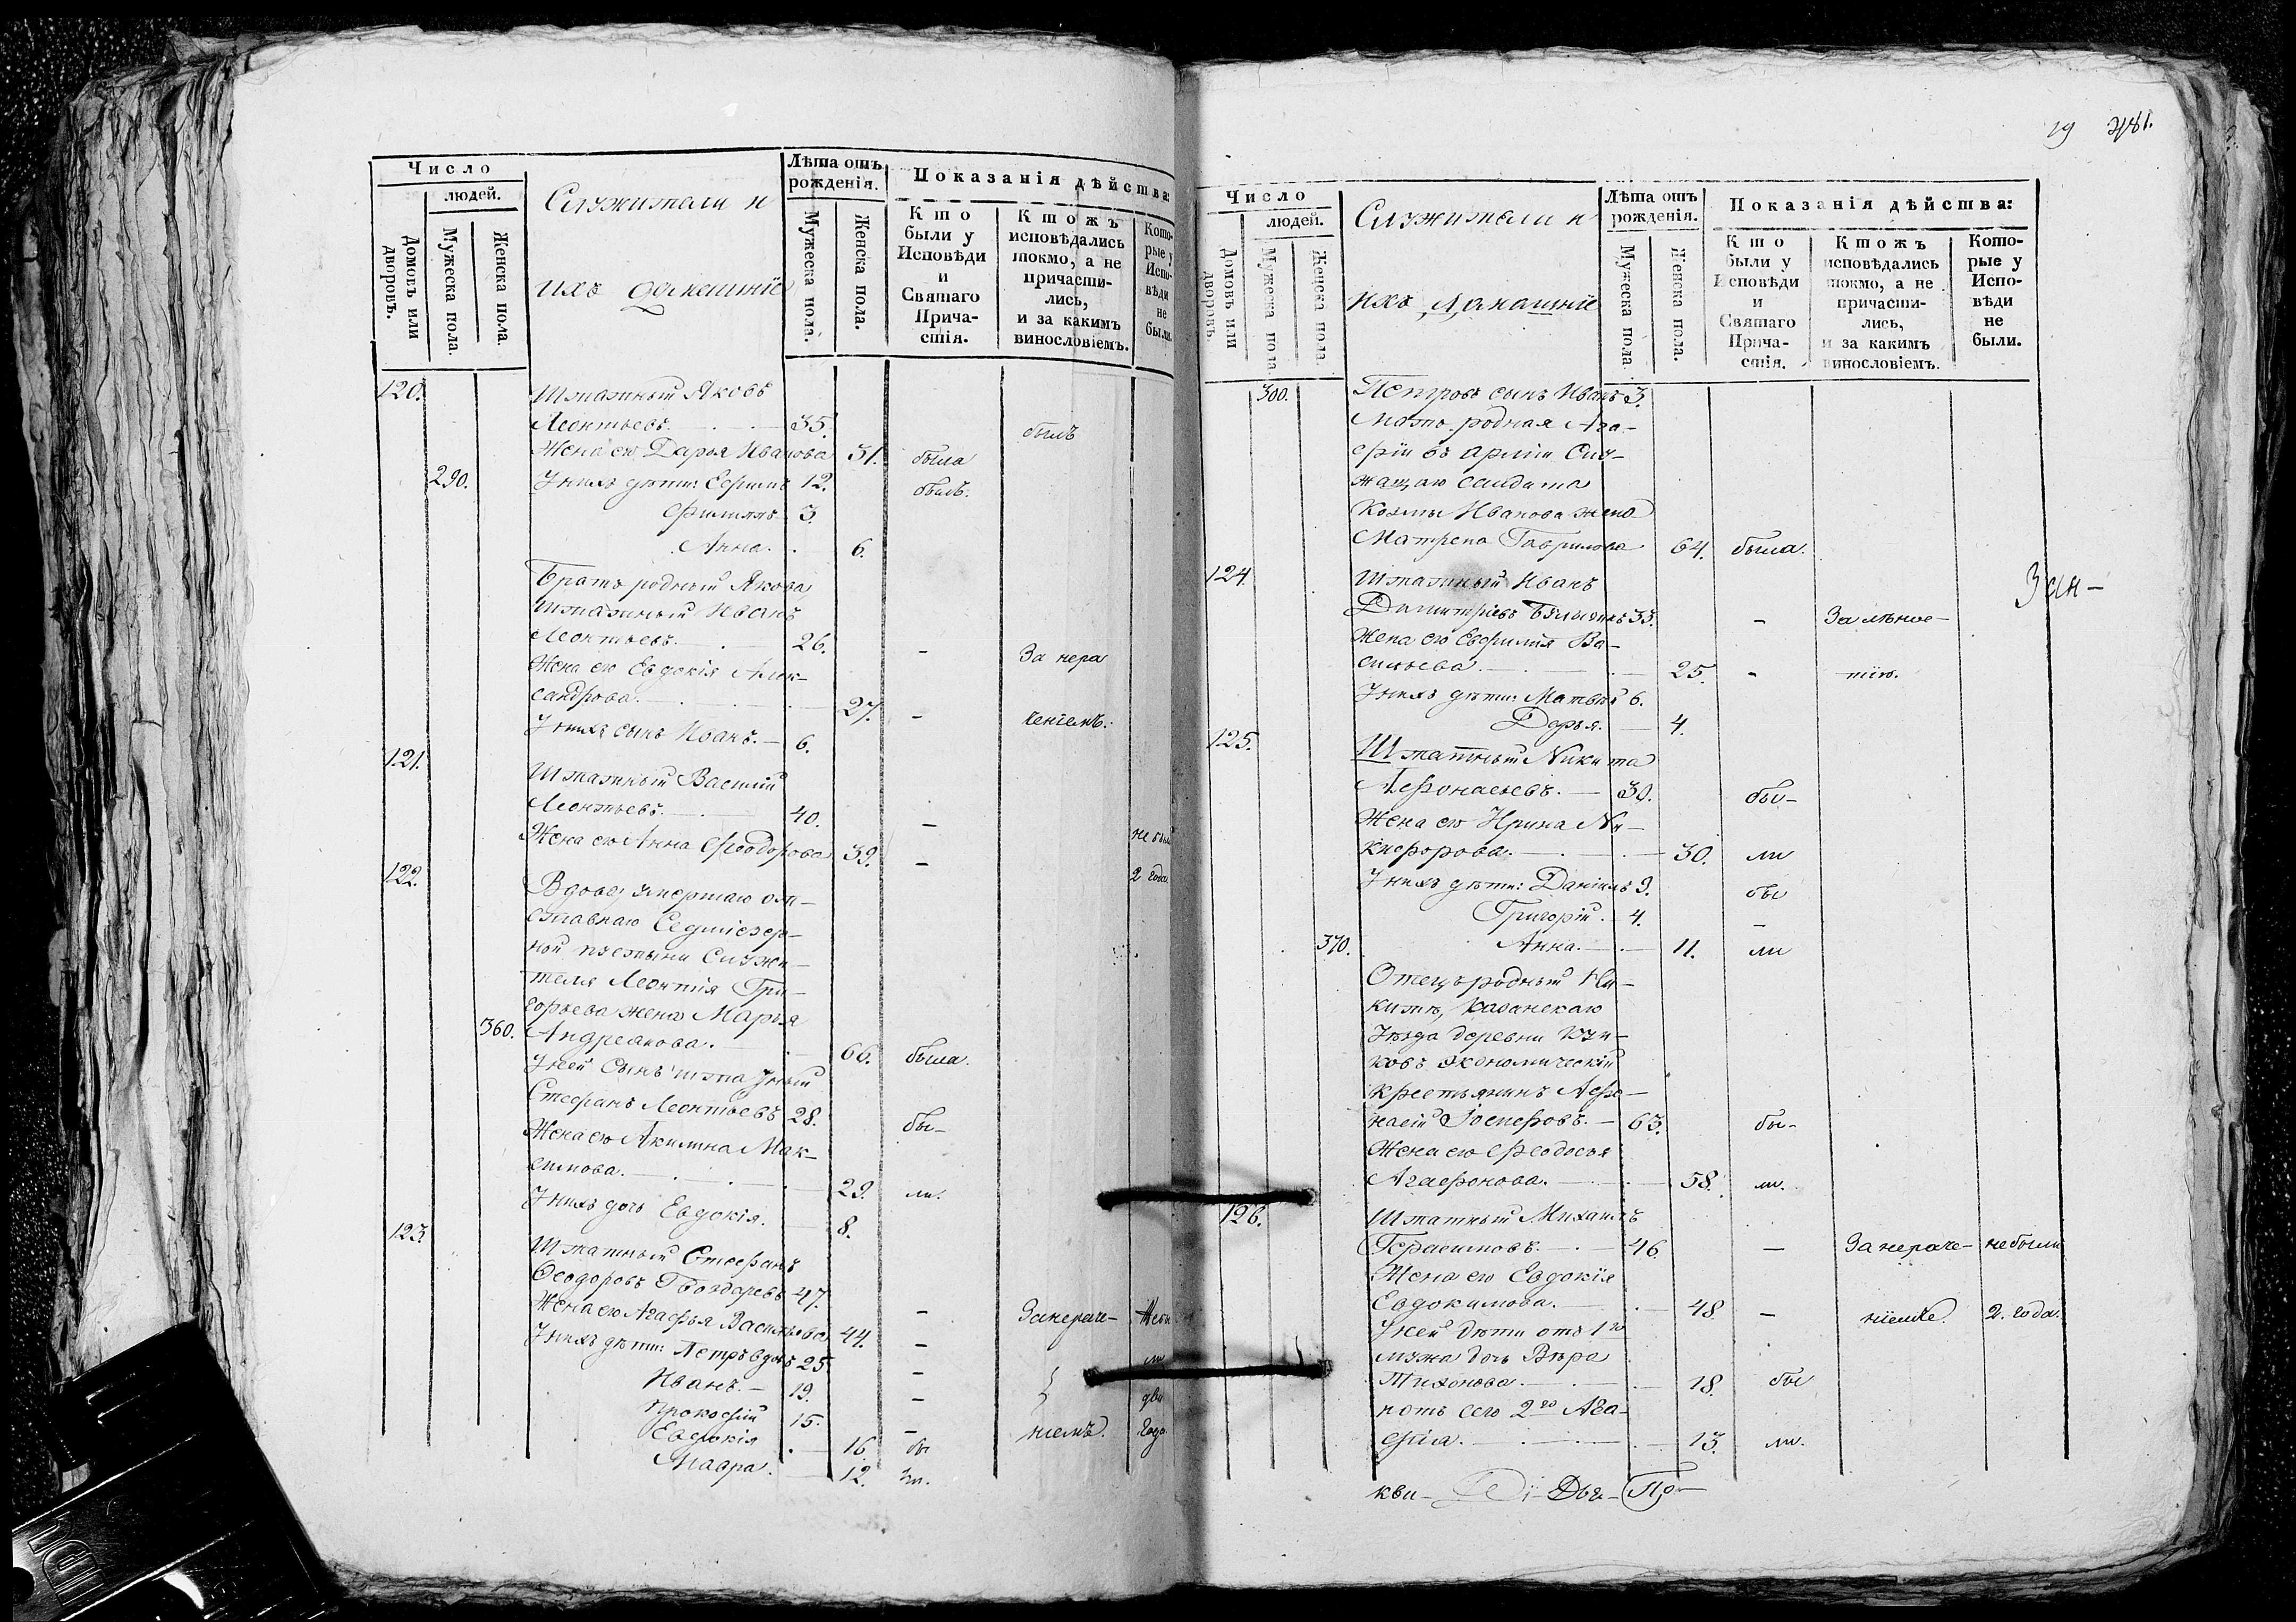 Число
людей.
Домовъ или дворовъ.
Мужеска пола.
Женска пола.
Служители и
ихъ домашніе
Лѣта отъ рожденія.
Мужеска пола.
Женска пола.
Показанія дѣйства:
Кто были у Исповѣди и Святаго Причастія.
Ктожъ исповѣдались токмо, а не причастились, и за какимъ винословіемъ.
Которые у Исповѣди не были.
120. Штатный Яковъ
Леонтьевъ. 35. былъ
Жена его Дарья Иванова 31. была
290. У нихъ дѣти: Ефимъ 12. былъ.
Филиппъ 3.
Анна. 6.
Братъ родный Якова
штатный Иванъ
Леонтьевъ. 26. – За нера
Жена его Евдокія Алек-
сандрова. 27. – ченіемъ.
У нихъ сынъ Иванъ. 6.
121. Штатный Василій
Леонтьевъ. 40. –
Жена его Анна Ѳеодорова 39. – не были
122. 2 года
Вдова, умершаго от-
ставнаго Седміезер-
ной пустыни служи-
теля Леонтія Гри-
горьева жена Марья
360. Андреянова. 66. была.
У ней сынъ штатный
Стефанъ Леонтьевъ 28. бы-
Жена его Акилина Мак-
симова. 29. ли.
У нихъ дочь Евдокія. 8.
123. Штатный Стефанъ
Ѳеодоровъ Гвоздаревъ 47. –
Жена его Агафья Васильева 44. – Занераче- Небы
У нихъ дѣти: Петръ вдовъ 25. – ли
Иванъ. 19. – два
Прокофій 15. – ніемъ. года
Евдокія 16. бы
Мавра. 12. ли.
19
Число
людей.
Домовъ или дворовъ.
Мужеска пола
Женска пола.
Служители и
ихъ домашніе
Лѣта отъ рожденія.
Мужеска пола
Женска пола.
Показанія дѣйства:
Кто были у Исповѣди и Святаго Причастія.
Ктожъ исповѣдались токмо, а не причастились, и за какимъ винословіемъ.
Которые у Исповѣди не были.
300. Петровъ сынъ Иванъ 3.
Мать родная Ага-
фіи въ арміи слу-
жащаго солдата
Козмы Иванова жена
Матрена Гаврилова 64. была.
124. Штатный Иванъ
Димитріевъ 33. – За лѣнос-
Жена его Евфимія Ва-
сильева. 25. – тію.
У нихъ дѣти: Матвѣй 6.
Дарья. 4.
125. Штатный Никита
Афонасьевъ. 30. бы-
Жена его Ирина Ни-
кифорова. 30. ли
У нихъ дѣти: Даніилъ 9. бы
Григорій. 4. –
370. Анна. 11. ли
Отецъ родный Ни-
киты, Казанскаго
Уѣзда деревни
экономическій
крестьянинъ Афо-
насій Іосифовъ. 63. бы-
Жена его Ѳеодосья
Агафонова. 58. ли.
126. Штатный Михаилъ
Герасимовъ. 46. – За нераче- небыли
Жена его Евдокія
Евдокимова. 48 – ніемъ. 2. года.
У ней дѣти отъ 1го
мужа дочь Вѣра
Тихонова. 18. бы
и отъ сего 2го Ага-
фія. 13. ли.